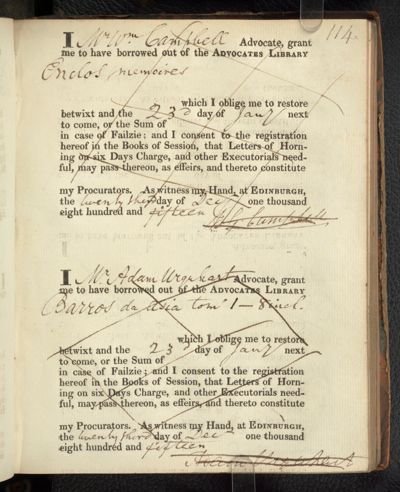 114.
I Mr Wm Campbell Advocate, grant
me to have borrowed out of the ADVOCATES LIBRARY
Enclos memoires
which I oblige me to restore
betwixt and the 23d day of Jany next
to come, or the Sum of
in case of Failzie: and I consent to the registration
hereof in the Books of Session, that Letters of Horn-
ing on six Days Charge, and other Executorials need-
ful, may pass thereon, as effeirs, and thereto constitute
my Procurators. As witness my Hand, at EDINBURGH,
the twenty third day of Decr one thousand
eight hundred and fifteen Campbell
I Mr Adam Urquhart Advocate, grant
me to have borrowed out of the ADVOCATES LIBRARY
Barros da Asia tom 1-8 incl.
which I oblige me to restore
betwixt and the 23d day of Jany next
to come, or the Sum of
in case of Failzie; and I consent to the registration
hereof in the Books of Session, that Letters of Horn-
ing on six Days Charge, and other Executorials need-
ful, may pass thereon, as effeirs, and thereto constitute
my Procurators. As witness my Hand, at EDINBURGH,
the twenty third day of Decr one thousand
eight hundred and fifteen Adam Urquhart